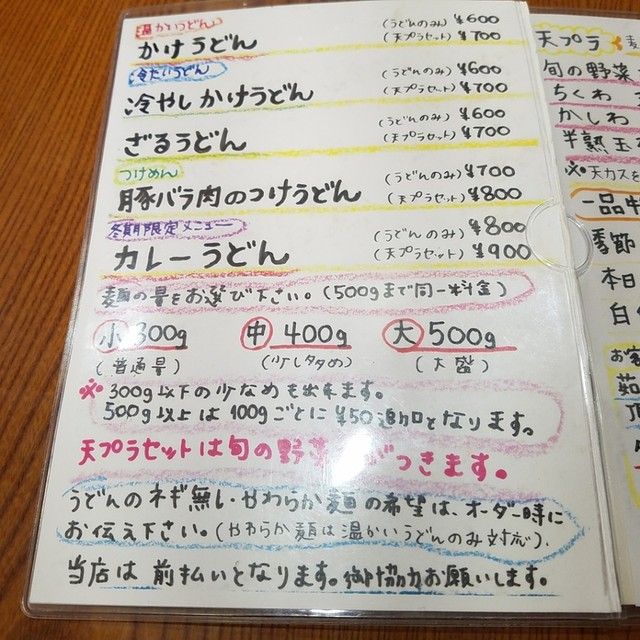 温かいうどん
かけうどん (うどんのみ) ¥600
(天プラセット) ¥700
冷たいうどん
冷やしかけうどん (うどんのみ) ¥600
(天プラセット) ¥700
ざるうどん (うどんのみ) ¥600
(天プラセット) ¥700
つけめん
豚バラ肉のつけうどん (うどんのみ) ¥700
(天プラセット) ¥800
冬期限定メニュー
カレーうどん (うどんのみ) ¥800
(天プラセット) ¥900
麺の量をお選び下さい。(500gまで同一料金)
小 300g 中 400g 大 500g
(普通量) (少し多め) (大盛)
※ 300g以下の少なめも出来ます。
500g以上は100gごとに¥50追加となります。
天プラセットは旬の野菜 がつきます。
うどんのネギ無し・やわらか麺の希望は、オーダー時に
お伝え下さい。(やわらか麺は温かいうどんのみ対応).
当店は前払いとなります。御協力お願いします。
天プラ
旬の野菜
ちくわ
かしわ
半熟玉
※天カスを
一品
季節
本日
白
お客